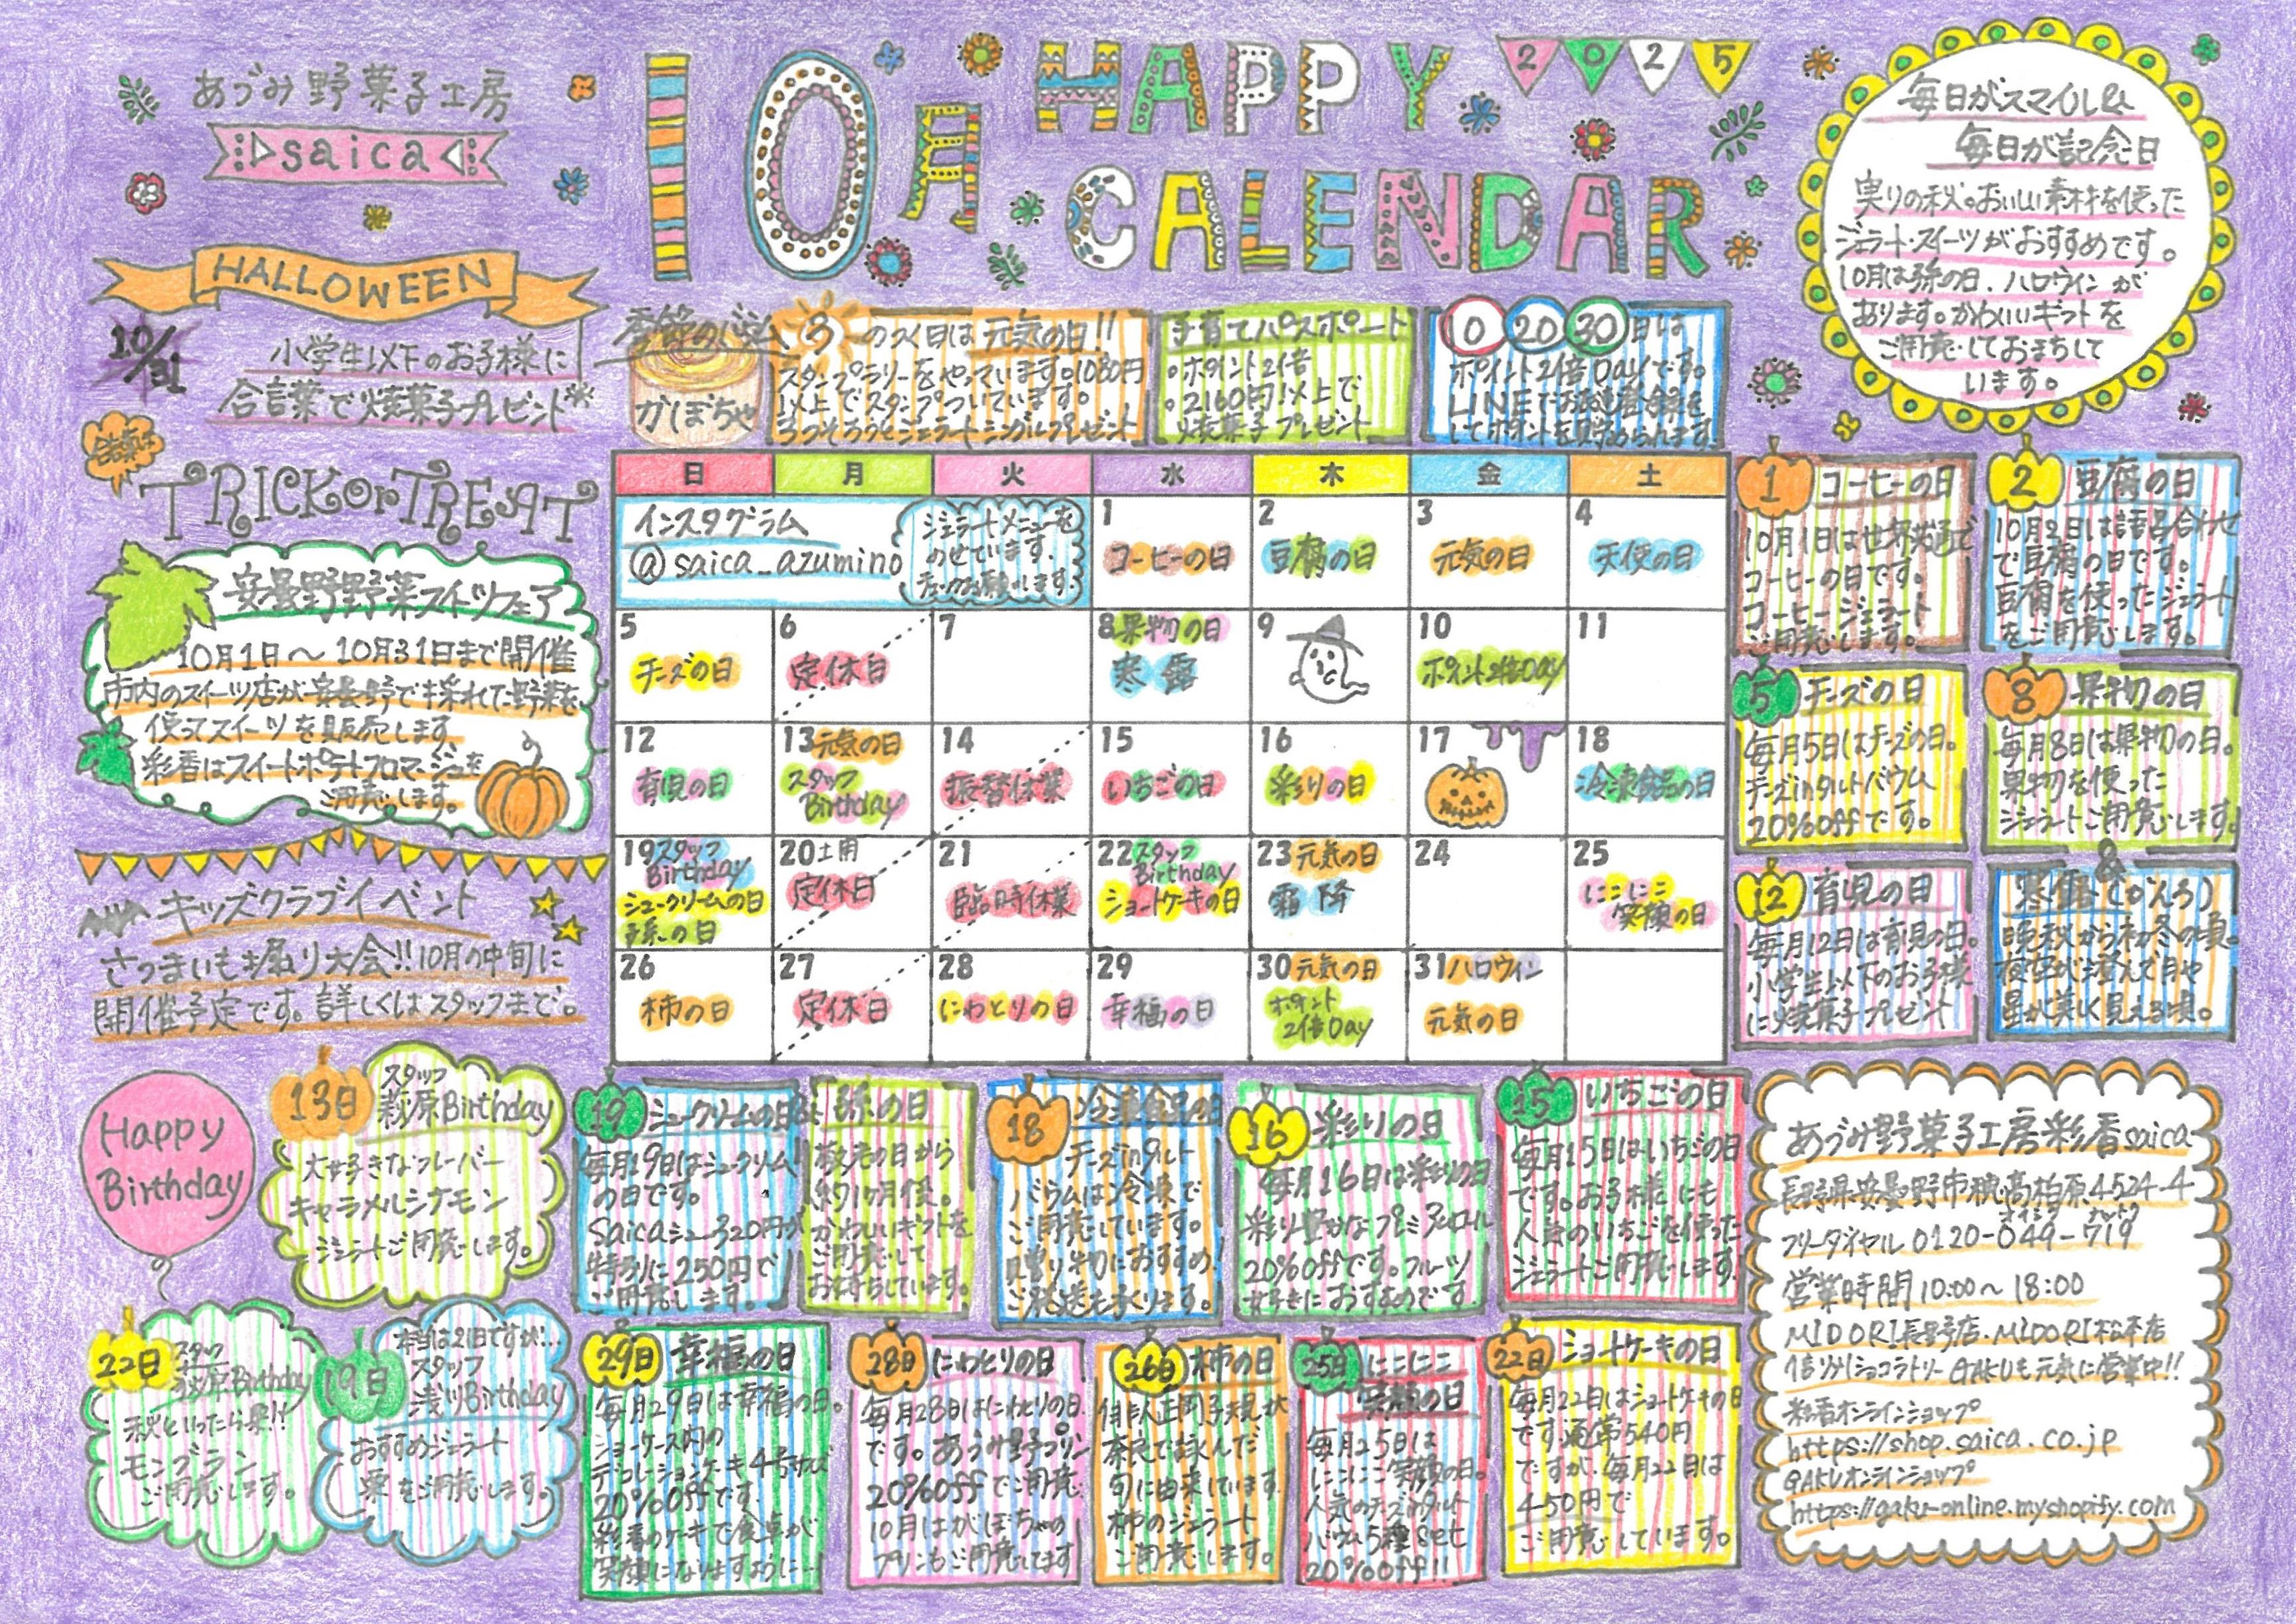 あづみ野菓子工房
saica
HALLOWEEN
10/31
小学生以下のお子様に
合言葉で焼菓子プレゼント
合言葉は
TRICK or TREAT
安曇野野菜スイーツフェア
10月1日～10月31日まで開催
市内のスイーツ店が安曇野で採れた野菜を
使ってスイーツを販売します。
彩香はスイートポテトフロマージュを
ご用意します。
キッズクラブイベント
さつまいも掘り大会!!10月の中旬に
開催予定です。詳しくはスタッフまで。
10月 HAPPY 2025
CALENDAR
毎日がスマイル&
毎日が記念日
実りの秋。おいしい素材を使った
ジェラート・スイーツがおすすめです。
10月は孫の日、ハロウィンが
あります。かわいいギフトを
ご用意しておまちして
います。
季節のバウム
かぼちゃ
3のつく日は元気の日!!
スタンプラリーをやっています。1080円
以上でスタンプついています。
3つそろうとジェラートシングルプレゼント
子育てパスポート
・ポイント2倍
・2160円以上で
焼菓子プレゼント
10 20 30日は
ポイント2倍Dayです。
LINEでお友達登録を
してポイントを貯められます。
日 月 火 水 木 金 土
インスタグラム
@saica_azumino
ジェラートメニューを
のせています。
チェックお願いします。
1 コーヒーの日
2 豆腐の日
3 元気の日
4 天使の日
5 チーズの日
6 定休日
7
8 果物の日
寒露
9
10 ポイント2倍Day
11
12 育児の日
13 元気の日
スタッフ
Birthday
14 振替休業
15 いちごの日
16 彩りの日
17
18 冷凍食品の日
19 スタッフ
Birthday
シュークリームの日
孫の日
20 土用
定休日
21 臨時休業
22 スタッフ
Birthday
ショートケーキの日
23 元気の日
霜降
24
25 にこにこ
笑顔の日
26 柿の日
27 定休日
28 にわとりの日
29 幸福の日
30 元気の日
ポイント
2倍Day
31 ハロウィン
元気の日
1 コーヒーの日
10月1日は世界共通で
コーヒーの日です。
コーヒージェラート
ご用意します。
2 豆腐の日
10月2日は語呂合わせ
で豆腐の日です。
豆腐を使ったジェラート
をご用意します。
5 チーズの日
毎月5日はチーズの日。
チーズinタルトバウム
20%offです。
8 果物の日
毎月8日は果物の日。
果物を使った
ジェラートご用意します。
&
12 育児の日
毎月12日は育児の日。
小学生以下のお子様
に焼菓子プレゼント
寒露(かんろ)
晩秋から初冬の頃。
夜空が澄んで月や
星が美しく見える頃。
Happy
Birthday
13日 スタッフ
萩原Birthday
大好きなフレーバー
キャラメルシナモン
ジェラートご用意します。
22日 スタッフ
Birthday
秋といったら栗!!
モンブラン
ご用意します。
19日 本当は21日ですが…
スタッフ
浅川Birthday
おすすめジェラート
栗をご用意します。
19 シュークリームの日&
毎月19日はシュークリーム
の日です。
Saicaシュー320円が
特別に250円で
ご用意します。
孫の日
敬老の日から
約1ヶ月後。
かわいいギフトを
ご用意して
お待ちしています。
18 冷凍食品の日
チーズinタルト
バウムは冷凍で
ご用意しています。
贈り物におすすめ。
ご発送も承ります。
16 彩りの日
毎月16日は彩りの日
彩り豊かなプレミアムロール
20%offです。フルーツ
好きにおすすめです
15 いちごの日
毎月15日はいちごの日
です。お子様にも
人気のいちごを使った
ジェラートご用意します。
29日 幸福の日
毎月29日は幸福の日。
ショーケース内の
デコレーションケーキ4号サイズ
20%offです。
彩香のケーキで食卓が
笑顔になりますように…
28日 にわとりの日
毎月28日はにわとりの日
です。あづみ野プリン
20%offでご用意
10月はかぼちゃの
プリンもご用意してます
26日 柿の日
俳人正岡子規が
奈良で詠んだ
句に由来しています。
柿のジェラート
ご用意します。
25日 にこにこ
笑顔の日
毎月25日は
にこにこ笑顔の日。
人気のチーズinタルト
バウム5種set
20%off!!
22日 ショートケーキの日
毎月22日はショートケーキの日
です。通常540円
ですが、毎月22日は
450円で
ご用意しています。
あづみ野菓子工房彩香saica
長野県安曇野市穂高柏原4524-4
フリーダイヤル 0120-049-719
営業時間 10:00～18:00
MIDORI長野店、MIDORI松本店
信州ショコラトリーGAKUも元気に営業中!!
彩香オンラインショップ
https://shop.saica.co.jp
GAKUオンラインショップ
https://gaku-online.myshopify.com